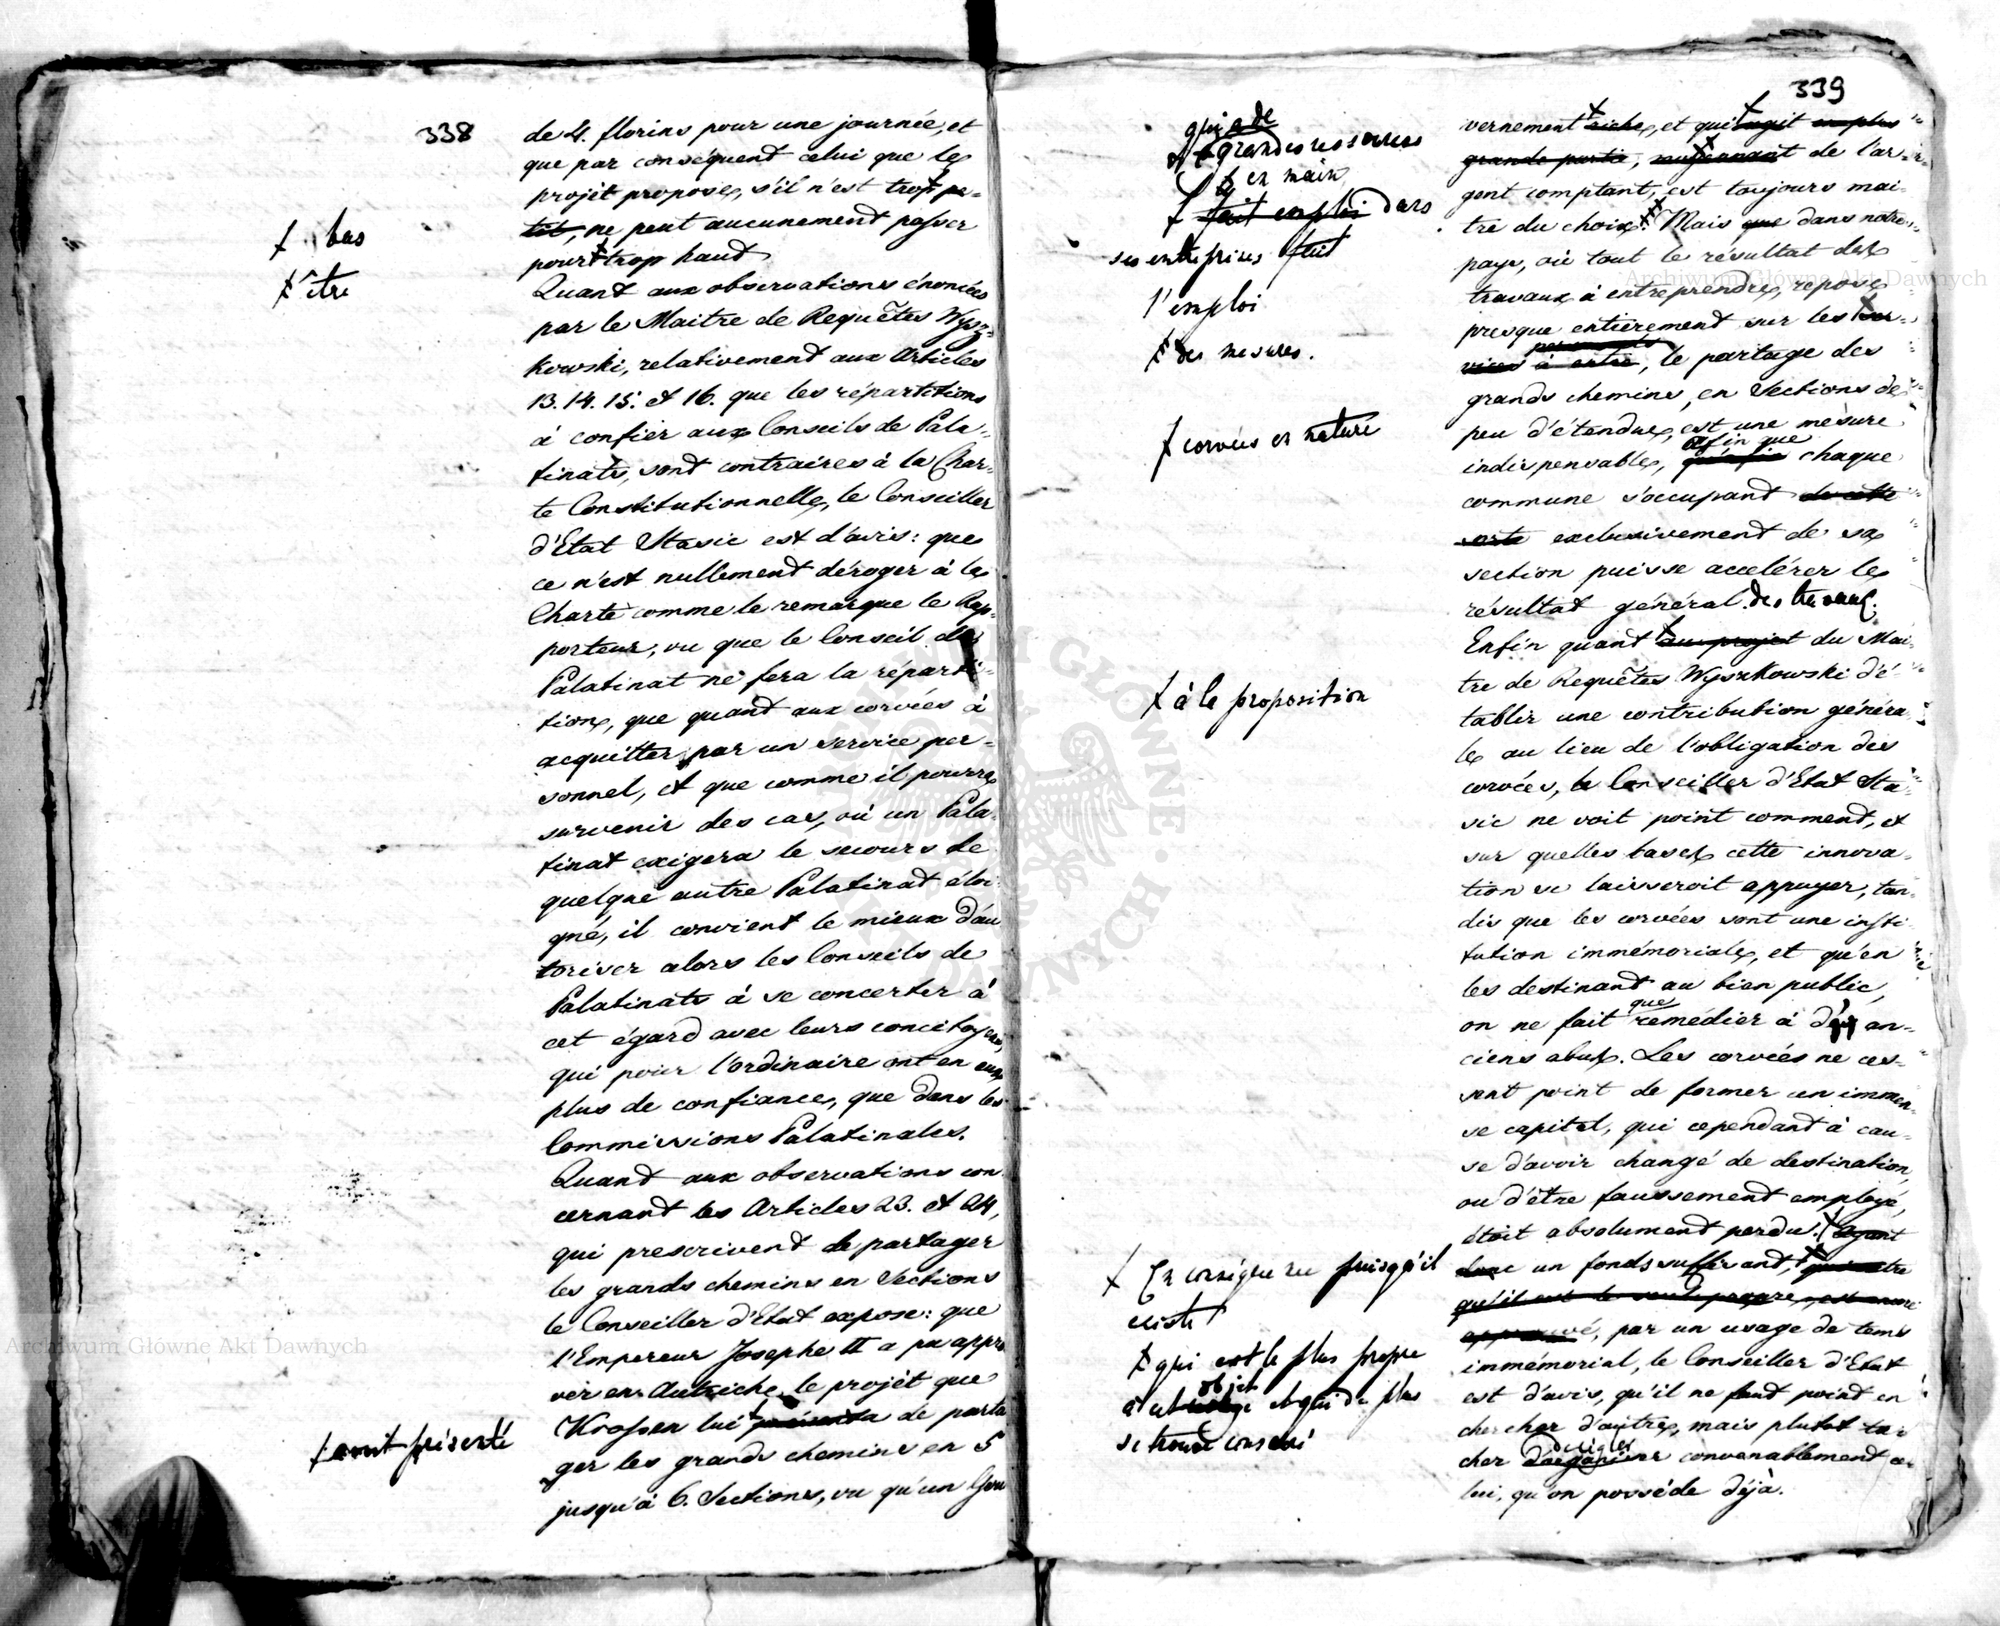 338
de 4. florins pour une journée, et
que par conséquent celui que le
projèt propose, s'il n'est trop pe-
tit, ne peut aucunement passer
pour trop haud.
⨍ bas
⨍ d'être
Quant aux observations énoncées
par le Maitre de Requêtes Wysz-
kowski, relativement aux Articles
13. 14. 15. et 16. que les répartitions
à confier aux Conseils de Pala-
tinats, sont contraires à la Char-
te Constitutionnelle, le Conseiller
d'Etat Stasic est d'avis: que
ce n'est nullement déroger à la
Charte comme le remarque le Rap-
porteur, vu que le Conseil de
Palatinat ne fera la réparti-
tion, que quant aux corvées à
acquitter par un service per-
sonnel, et que comme il pourra
survenir des cas, où un Pala-
tinat exigera le secours de
quelque autre Palatinat éloi-
gné, il convient le mieux d'au
toriser alors les Conseils de
Palatinats à se concerter à
cet égard avec leurs concitoyens,
qui pour l'ordinaire ont en eux
plus de confiance, que dans les
Commissions Palatinales.
Quand aux observations con
cernant les Articles 23. et 24,
qui prescrivent de partager
les grands chemins en Sections
le Conseiller d'Etat expose: que
l'Empereur Josephe II a pu appro
ver en Autriche le projèt que
Krossen lui présenta de parta
⨍ avait présenté
ger les grands chemins en 5
jusqu'à 6. Sections, vu qu'un Gou
339
qui a de
grandes ressources
en main
⨍ fait emploi dans
ses entreprises fait
l'emploi
⨍ des mesures.
⨍ corvées en nature
⨍ à la proposition
⨍ En conséquence puisqu'il
existe
⨍ qui est le plus propre
objet
à cet et qui de plus
se trouve consacré
vernement riche, et qui agit en plus
grande partie, moyennant de l'ar-
gent comptant, est toujours mai-
tre du choix. Mais que dans notre
pays, où tout le résultat des
travaux à entreprendre, repose
presque entièrement sur les ser-
vices à entre, le partage des
grands chemins, en Sections de
peu d'étendue, est une mesure
afin que
indispensable, chaque
commune s'occupant de cette
sorte exclusivement de sa
section puisse accélérer le
résultat général des travaux.
Enfin quant au projet du Mai
tre de Requêtes Wyszkowski d'é-
tablir une contribution généra
le au lieu de l'obligation des
corvées, le Conseiller d'Etat Sta-
sic ne voit point comment, et
sur quelles bases cette innova-
tion se laisseroit appuyer, tan-
dis que les corvées sont une insti
tution immémoriale, et qu'en
les destinant au bien public,
que
on ne fait remédier à d' an-
ciens abus. Les corvées ne ces-
sent point de former un immen-
se capital, qui cependant à cau-
se d'avoir changé de destination,
ou d'être faussement employé,
étoit absolument perdu. Ayant
donc un fonds suffisant,
qu'il est le seul propre, est encore
approuvé, par un usage de tems
immémorial, le Conseiller d'Etat
est d'avis, qu'il ne faut point en
chercher d'autre, mais plutot ta-
cher d'organiser convenablement ce
lui, qu'on possède déjà.